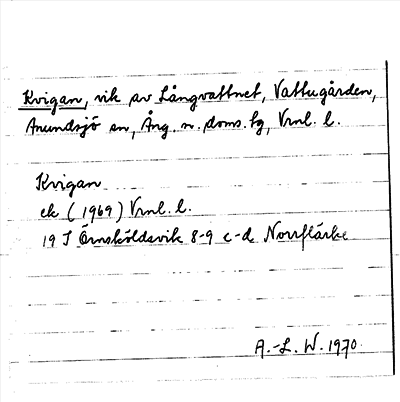 Kvigan, vik av Långvattnet, Vattugården,
Anundsjö sn, Ång. n. doms. fg, Vnl. l.
Kvigan
ek (1969) Vnl. l.
19 J Örnsköldsvik 8-9 c-d Norrflärke
A.-L. W. 1970.